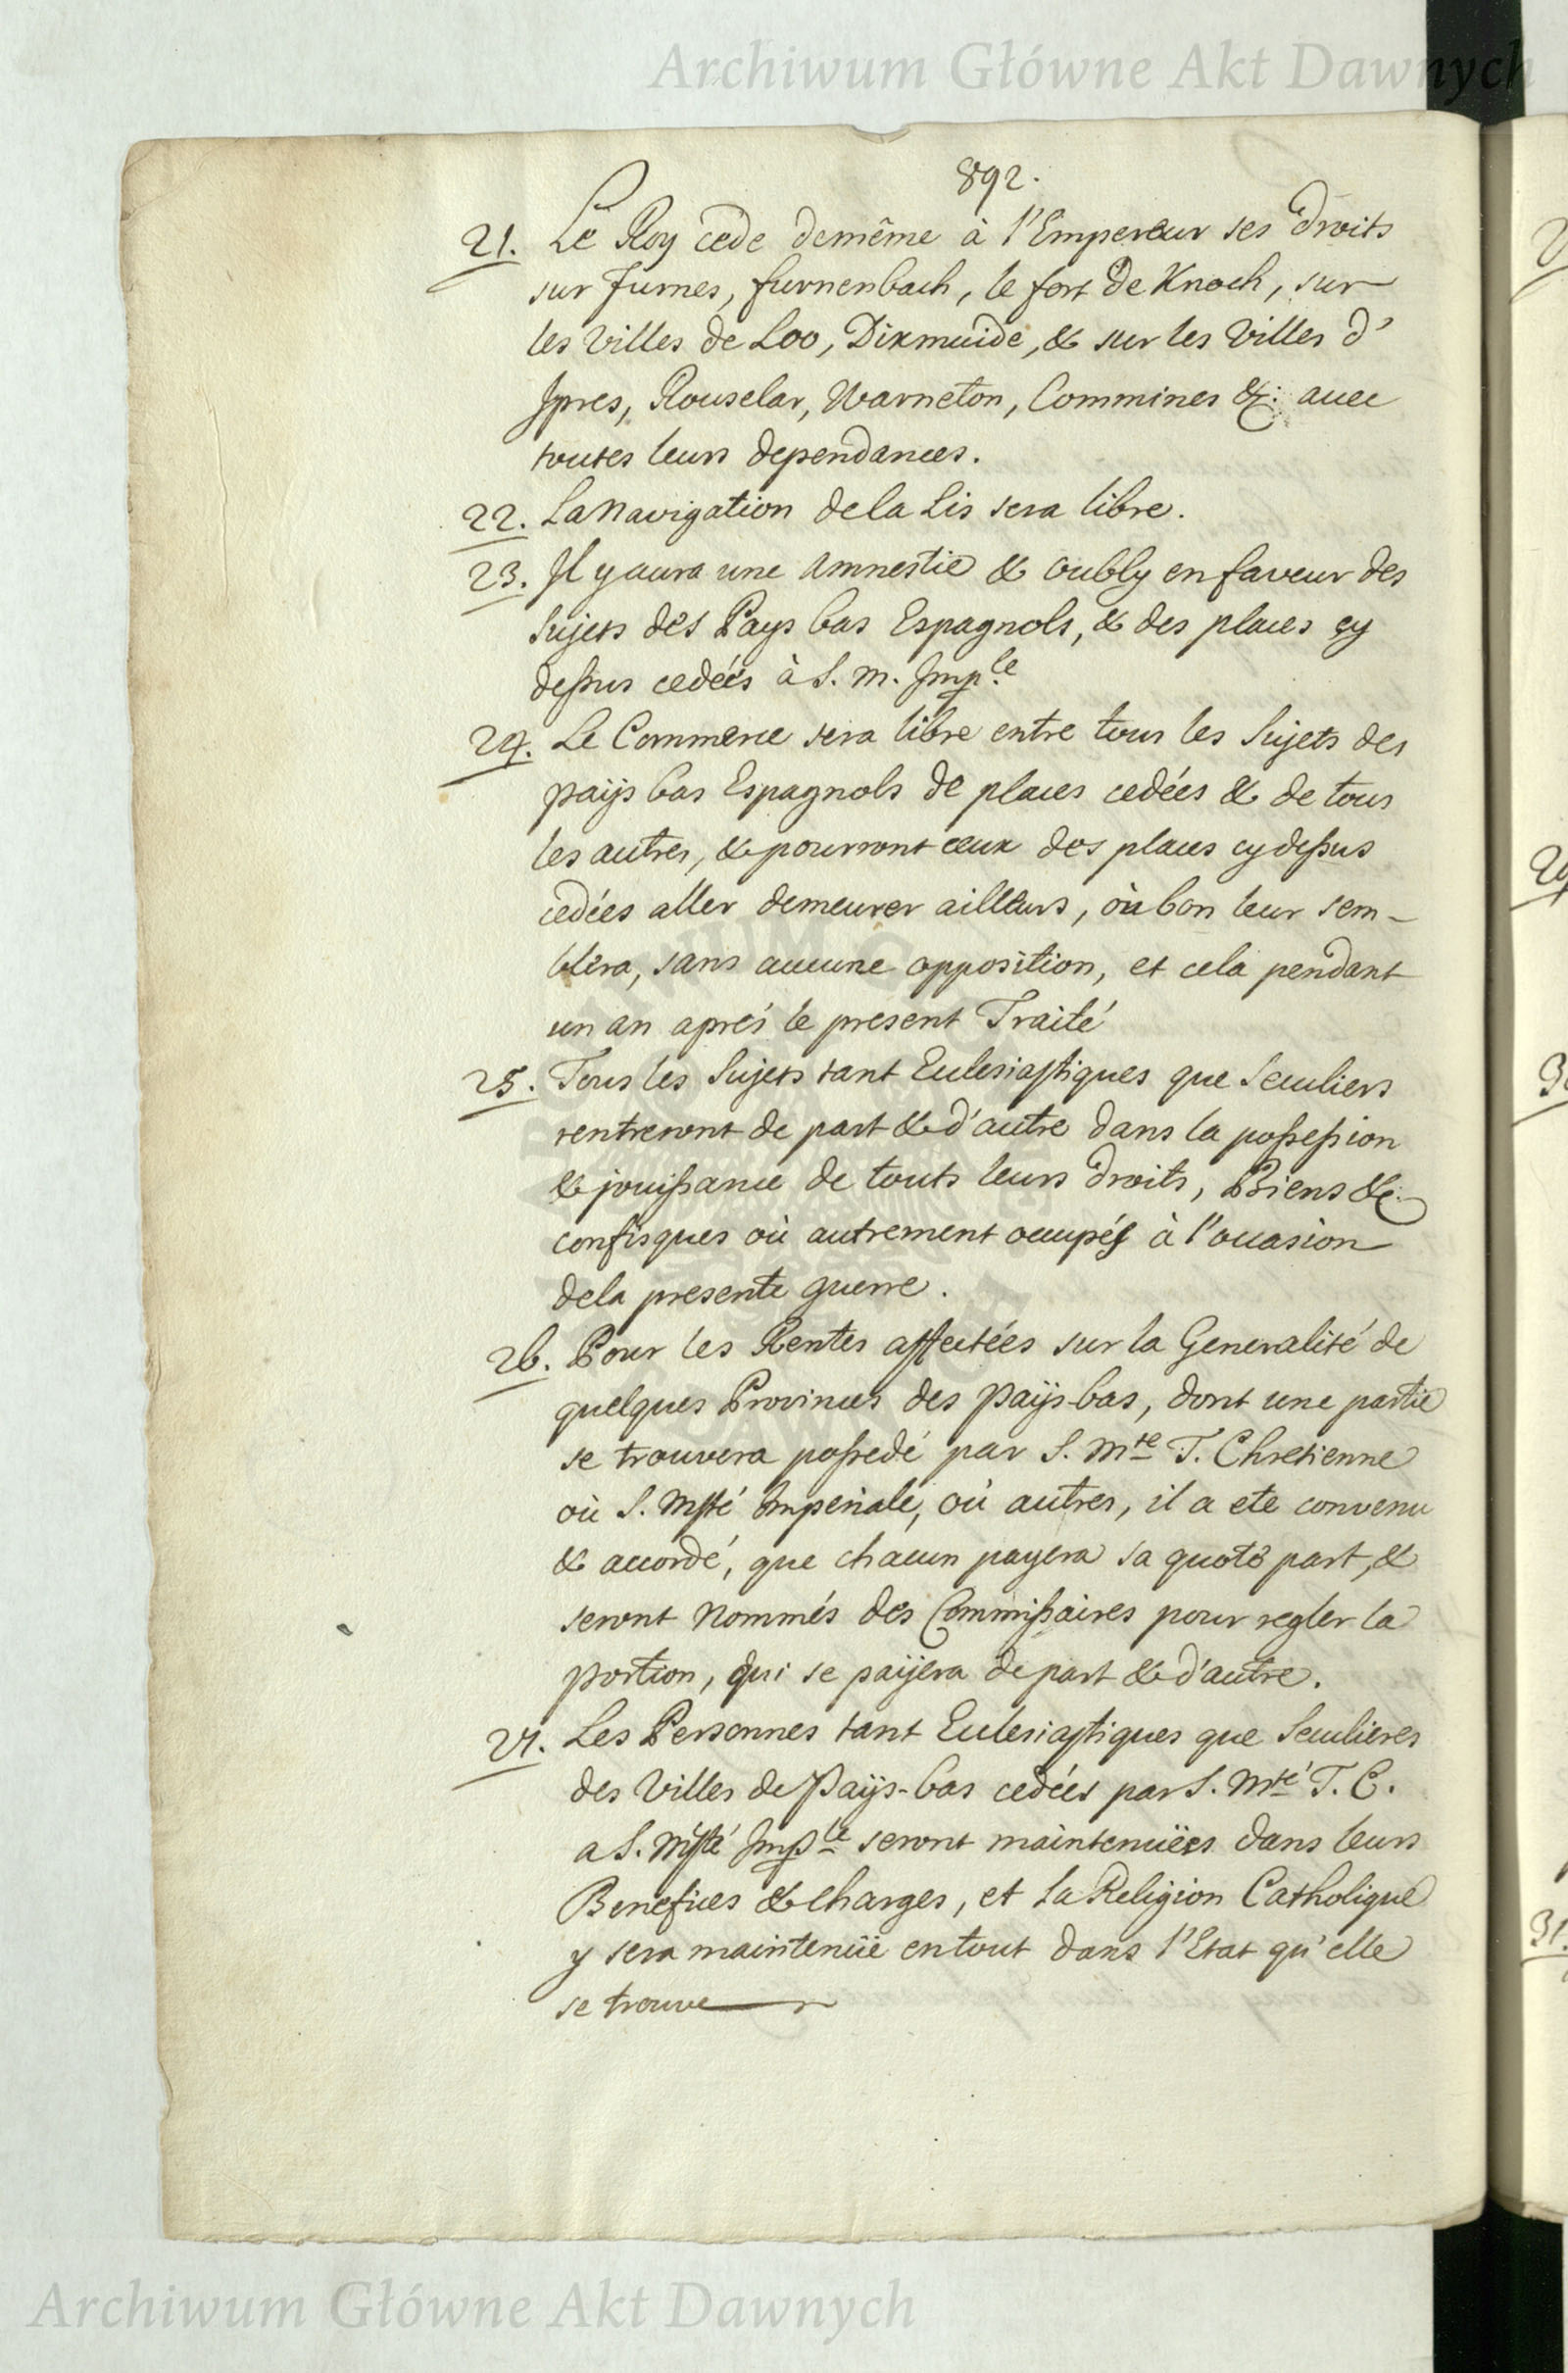 Archiwum Główne Akt Dawnych
892.
21. Le Roy cede demême à l'Empereur ses Droits
sur Furnes, furnenbach, le fort de Knoch, sur
les Villes de Loo, Dixmuide, & sur les Villes d'
Ipres, Rouselar, Warneton, Commines &c: avec
toutes leurs dependances.
22. La Navigation dela Lis sera libre.
23. Il y aura une Amnestie & oubly en faveur des
Sujets des Pays bas Espagnols, & des places cy
dessus cedées à S. M. Imp.le
24. Le Commerce sera libre entre tous les Sujets des
païjs bas Espagnols de places cedées & de tous
les autres, & pourront ceux des places cy dessus
cedées aller demeurer ailleurs, où bon leur sem-
blera, sans aucune opposition, et cela pendant
un an aprés le present Traité
25. Tous les Sujets tant Eclesiastiques que Seculiers
rentreront de part & d'autre dans la possession
& jouissance de touts leurs Droits, Biens &c
confisques où autrement occupés à l'occasion
dela presente guerre.
26. Pour les Rentes affectées sur la Generalité de
quelques Provinces des païjs-bas, dont une partie
se trouvera possedé par S. Mte T. Chretienne
où S. Msté Imperiale, où autres, il a ete convenu
& accordé, que chacun payera sa quote part, &
seront nommés des Commissaires pour regler la
portion, qui se païjera de part & d'autre.
27. Les Personnes tant Eclesiastiques que Seculieres
des Villes de Païjs-bas cedées par S. Mté T. C.
a S. Msté Imple seront maintenuëes dans leurs
Benefices & charges, et la Religion Catholique
y sera maintenüe en tout dans l'Etat qu'elle
se trouve
31.
Archiwum Główne Akt Dawnych